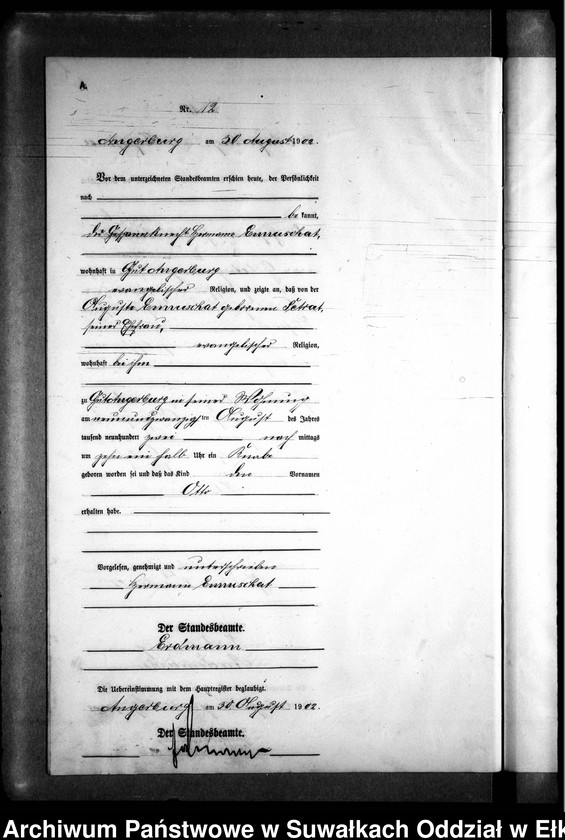 A.
Nr. 12
Angerburg am 30 August 1902.
Vor dem unterzeichneten Standesbeamten erschien heute, der Persönlichkeit
nach
be kannt,
der Gespannknecht Hermann Enruschat,
wohnhaft in Gut Angerburg
evangelischer Religion, und zeigte an, daß von der
Auguste Enruschat geborenen Petrat,
seiner Ehefrau,
evangelischer Religion,
wohnhaft bei ihm
zu Gut Angerburg in seiner Wohnung
am neunundzwanzig ten August des Jahres
tausend neunhundert zwei nach mittags
um zehn ein halb Uhr ein Knabe
geboren worden sei und daß das Kind den Vornamen
Otto
erhalten habe.
Vorgelesen, genehmigt und unterschrieben
Hermann Enruschat
Der Standesbeamte.
Erdmann
Die Uebereinstimmung mit dem Hauptregister beglaubigt.
Angerburg am 30 August 1902.
Der Standesbeamte.
Archiwum Państwowe w Suwałkach Oddział w Ełk